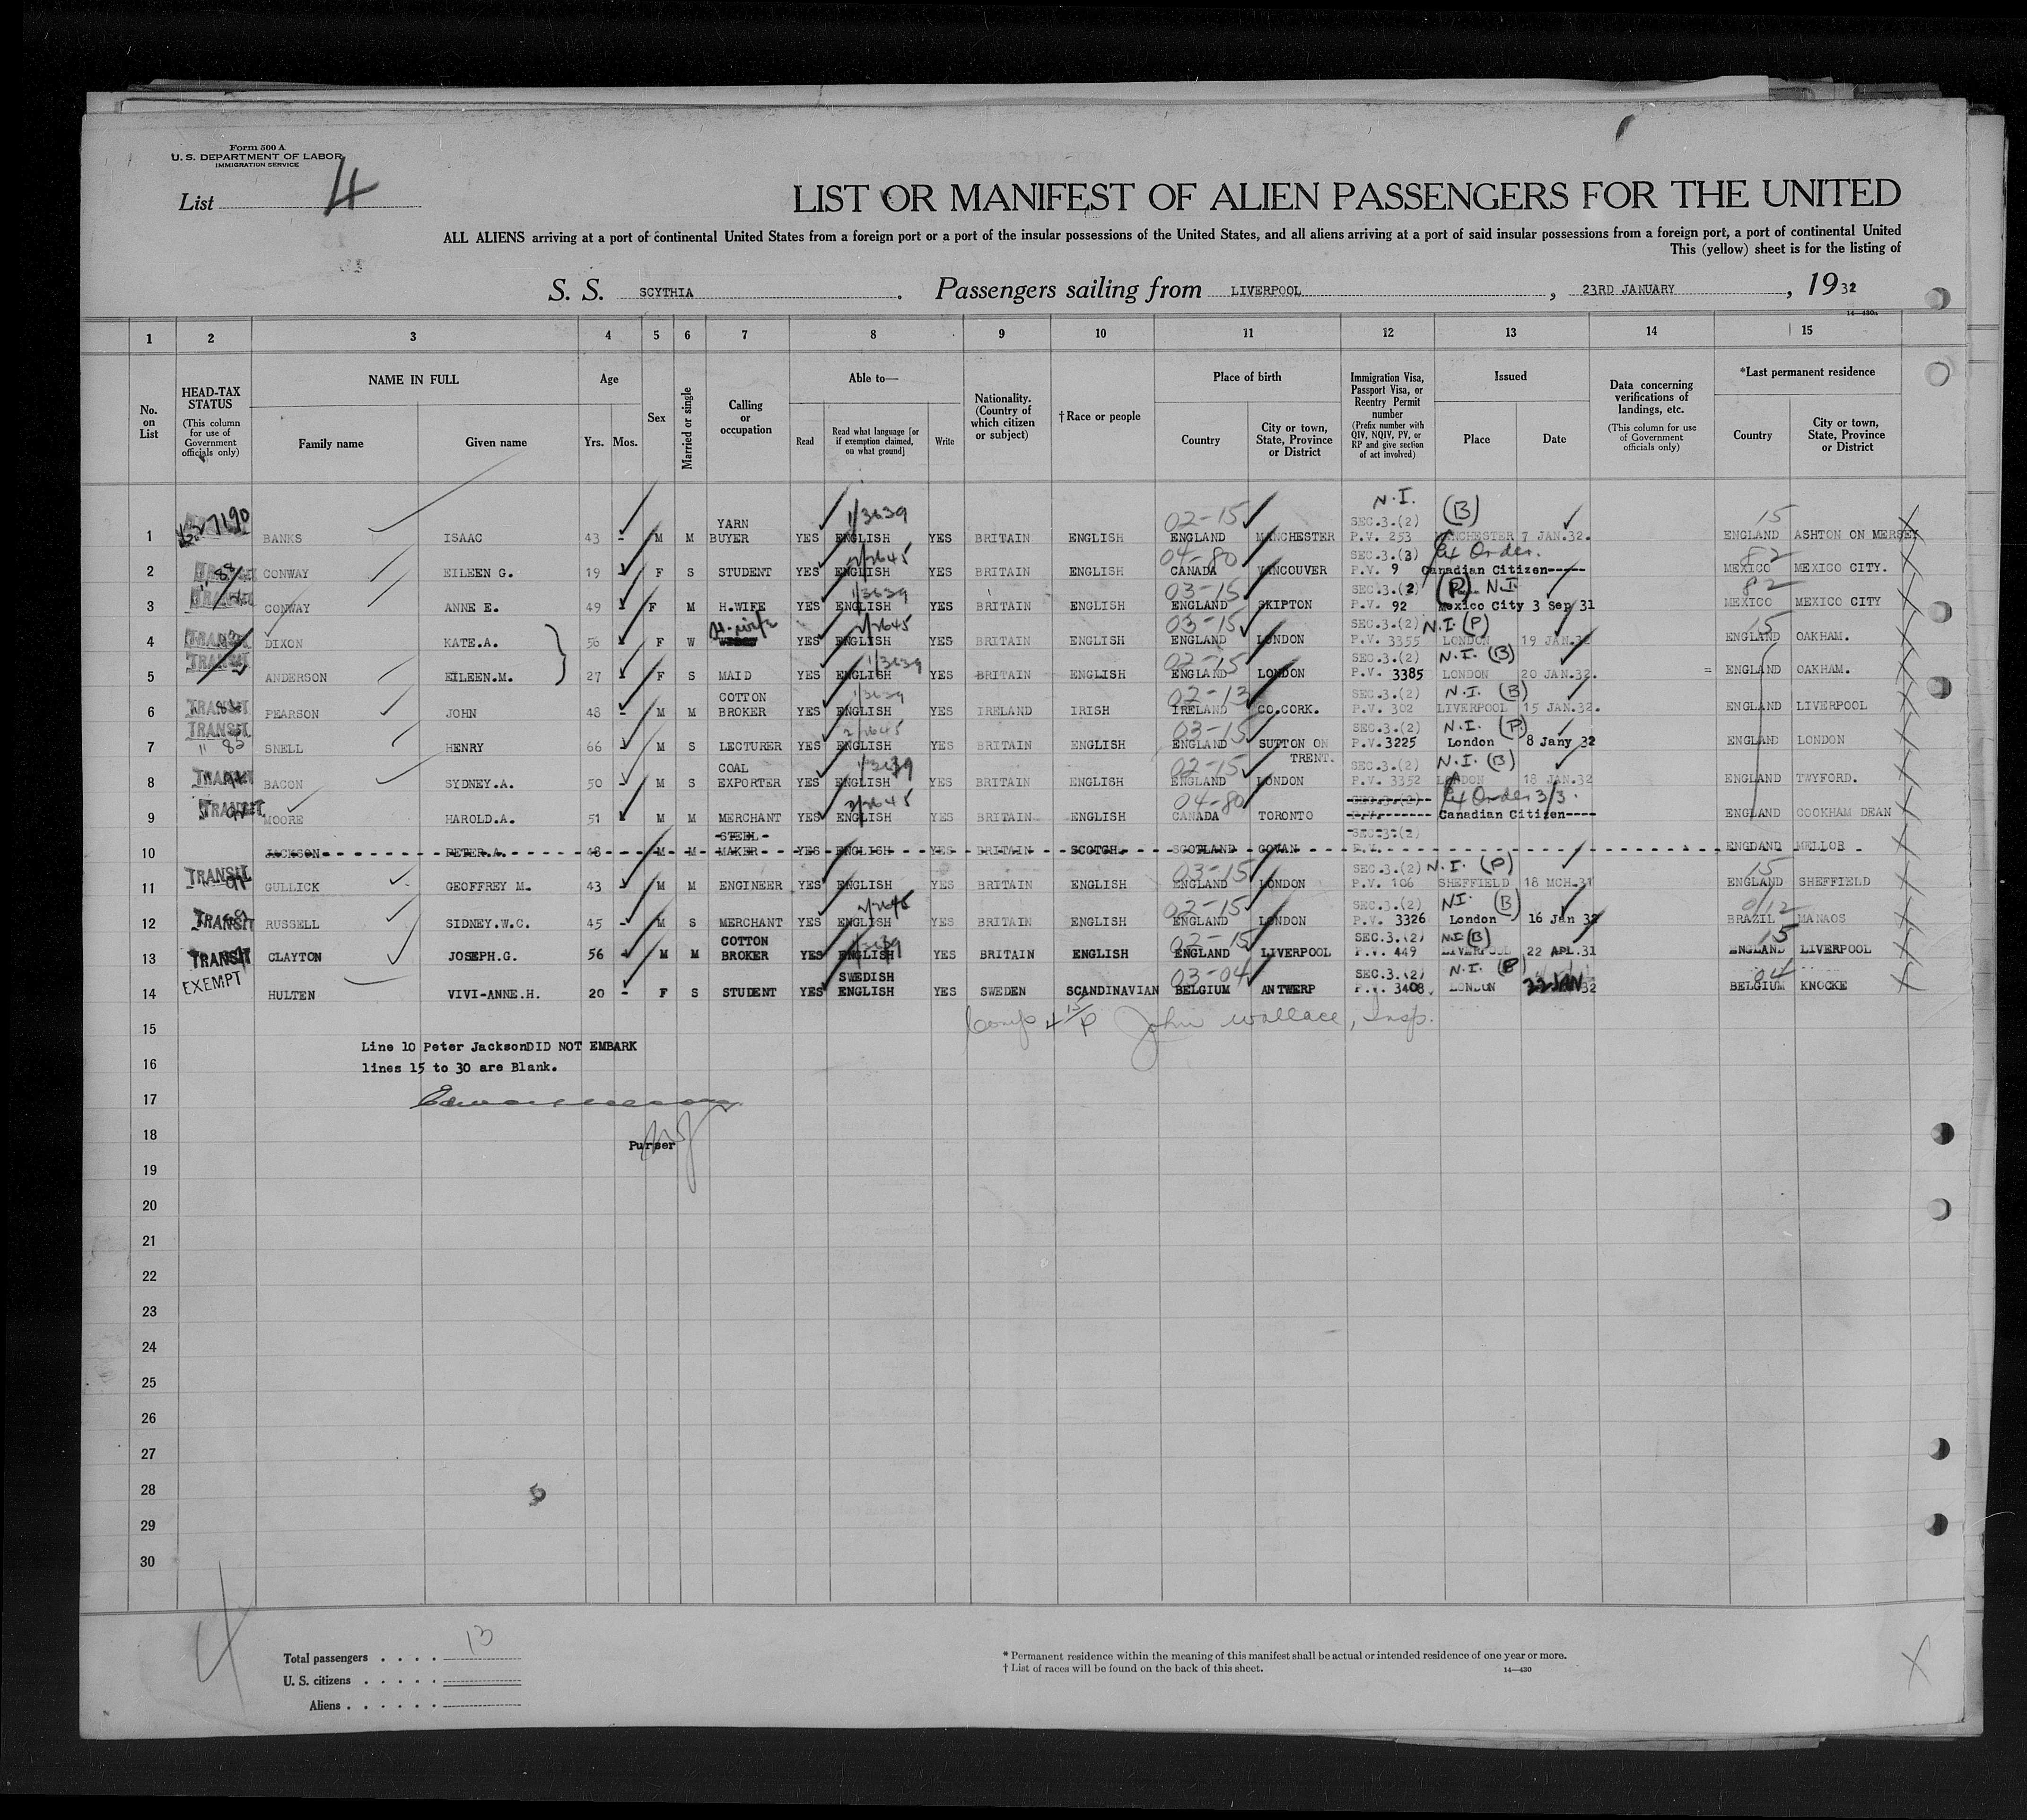 Form 500 A
U. S. DEPARTMENT OF LABOR
IMMIGRATION SERVICE
List 4
LIST OR MANIFEST OF ALIEN PASSENGERS FOR THE UNITED
ALL ALIENS arriving at a port of continental United States from a foreign port or a port of the insular possessions of the United States, and all aliens arriving at a port of said insular possessions from a foreign port, a port of continental United
This (yellow) sheet is for the listing of
S. S. SCYTHIA. Passengers sailing from LIVERPOOL, 23RD JANUARY, 1932
14—430a
1 2 3 4 5 6 7 8 9 10 11 12 13 14 15
No. on List
HEAD-TAX STATUS (This column for use of Government officials only)
NAME IN FULL Family name Given name
Age Yrs. Mos.
Sex
Married or single
Calling or occupation
Able to— Read Read what language [or if exemption claimed, on what ground] Write
Nationality. (Country of which citizen or subject)
†Race or people
Place of birth Country City or town, State, Province or District
Immigration Visa, Passport Visa, or Reentry Permit number (Prefix number with QIV, NQIV, PV, or RP and give section of act involved)
Issued Place Date
Data concerning verifications of landings, etc. (This column for use of Government officials only)
*Last permanent residence Country City or town, State, Province or District
YARN 1/3639 02-15 N.I. SEC.3.(2) (B) 15
1 BANKS ISAAC 43 - M M BUYER YES ENGLISH YES BRITAIN ENGLISH ENGLAND MANCHESTER P.V. 253 MANCHESTER 7 JAN.32. ENGLAND ASHTON ON MERSEY
2/2645 04-80 SEC.3.(3) Ex Order. 82
2 CONWAY EILEEN G. 19 F S STUDENT YES ENGLISH YES BRITAIN ENGLISH CANADA VANCOUVER P.V. 9 Canadian Citizen----- MEXICO MEXICO CITY.
TRANSIT 1/3639 03-15 SEC.3.(2) (P) N.I. 82
3 CONWAY ANNE E. 49 F M H.WIFE YES ENGLISH YES BRITAIN ENGLISH ENGLAND SKIPTON P.V. 92 Mexico City 3 Sep 31 MEXICO MEXICO CITY
TRANSIT H-wife 2/2645 03-15 SEC.3.(2) N.I (P) 15
4 DIXON KATE.A. 56 F W YES ENGLISH YES BRITAIN ENGLISH ENGLAND LONDON P.V. 3355 LONDON 19 JAN.32 ENGLAND OAKHAM.
TRANSIT 1/3639 02-15 SEC.3.(2) N.I. (B)
5 ANDERSON EILEEN.M. 27 F S MAID YES ENGLISH YES BRITAIN ENGLISH ENGLAND LONDON P.V. 3385 LONDON 20 JAN.32. = ENGLAND OAKHAM.
TRANSIT COTTON 1/3639 02-13 SEC.3.(2) N.I. (B)
6 PEARSON JOHN 48 - M M BROKER YES ENGLISH YES IRELAND IRISH IRELAND CO.CORK. P.V. 302 LIVERPOOL 15 JAN.32. ENGLAND LIVERPOOL
TRANSIT 2/2645 03-15 SEC.3.(2) N.I. (P)
7 SNELL HENRY 66 M S LECTURER YES ENGLISH YES BRITAIN ENGLISH ENGLAND SUTTON ON TRENT. P.V.3225 London 8 Jany 32 ENGLAND LONDON
TRANSIT COAL 1/3639 02-15 SEC.3.(2) N.I. (B)
8 BACON SYDNEY.A. 50 M S EXPORTER YES ENGLISH YES BRITAIN ENGLISH ENGLAND LONDON P.V. 3352 LONDON 18 JAN.32 ENGLAND TWYFORD.
TRANSIT 2/2645 04-80 SEC.3.(2) Ex Order 3/3.
9 MOORE HAROLD.A. 51 M M MERCHANT YES ENGLISH YES BRITAIN ENGLISH CANADA TORONTO Canadian Citizen---- ENGLAND COOKHAM DEAN
STEEL SEC.3.(2)
10 JACKSON PETER.A. 48 M M MAKER YES ENGLISH YES BRITAIN SCOTCH. SCOTLAND GOVAN P.V. ENGDAND MELLOR
TRANSIT 03-15 SEC.3.(2) N.I. (P) 15
11 GULLICK GEOFFREY M. 43 M M ENGINEER YES ENGLISH YES BRITAIN ENGLISH ENGLAND LONDON P.V. 106 SHEFFIELD 18 MCH.31 ENGLAND SHEFFIELD
TRANSIT 2/2645 02-15 SEC.3.(2) NI. (B) 0/12
12 RUSSELL SIDNEY.W.C. 45 - M S MERCHANT YES ENGLISH YES BRITAIN ENGLISH ENGLAND LONDON P.V. 3326 London 16 Jan 32 BRAZIL MANAOS
TRANSIT COTTON 1/3639 02-15 SEC.3.(2) N.I (B) 15
13 CLAYTON JOSEPH.G. 56 - M M BROKER YES ENGLISH YES BRITAIN ENGLISH ENGLAND LIVERPOOL P.V. 449 LIVERPOOL 22 APL.31 ENGLAND LIVERPOOL
EXEMPT SWEDISH 03-04 SEC.3.(2) N.I. 04
14 HULTEN VIVI-ANNE.H. 20 - F S STUDENT YES ENGLISH YES SWEDEN SCANDINAVIAN BELGIUM ANTWERP P.V. 3408. LONDON 22 JAN 32 BELGIUM KNOCKE
15 John Wallace, Insp.
Line 10 Peter JacksonDID NOT EMBARK
16 lines 15 to 30 are Blank.
17
18 Purser
19
20
21
22
23
24
25
26
27
28
29
30
4
Total passengers . . . . 13
U. S. citizens . . . . .
Aliens . . . . . .
* Permanent residence within the meaning of this manifest shall be actual or intended residence of one year or more.
† List of races will be found on the back of this sheet. 14—430